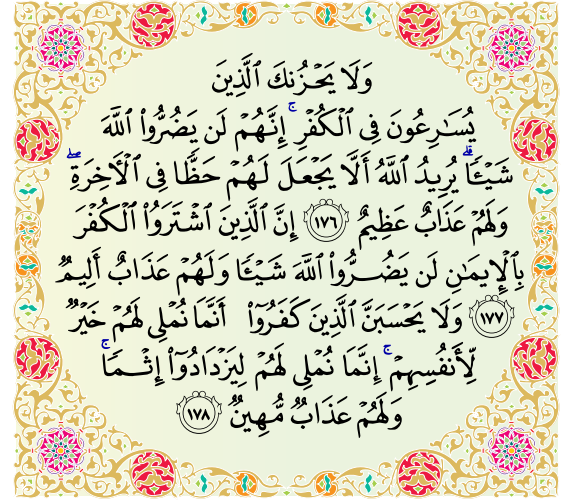 وَلَا يَحْزُنكَ ٱلَّذِينَ
يُسَٰرِعُونَ فِى ٱلْكُفْرِ ۚ إِنَّهُمْ لَن يَضُرُّوا۟ ٱللَّهَ
شَيْـًٔا ۗ يُرِيدُ ٱللَّهُ أَلَّا يَجْعَلَ لَهُمْ حَظًّا فِى ٱلْـَٔاخِرَةِ ۖ
وَلَهُمْ عَذَابٌ عَظِيمٌ ١٧٦ إِنَّ ٱلَّذِينَ ٱشْتَرَوُا۟ ٱلْكُفْرَ
بِٱلْإِيمَٰنِ لَن يَضُرُّوا۟ ٱللَّهَ شَيْـًٔا وَلَهُمْ عَذَابٌ أَلِيمٌ
١٧٧ وَلَا يَحْسَبَنَّ ٱلَّذِينَ كَفَرُوٓا۟ أَنَّمَا نُمْلِى لَهُمْ خَيْرٌ
لِّأَنفُسِهِمْ ۚ إِنَّمَا نُمْلِى لَهُمْ لِيَزْدَادُوٓا۟ إِثْمًا ۚ
وَلَهُمْ عَذَابٌ مُّهِينٌ ١٧٨